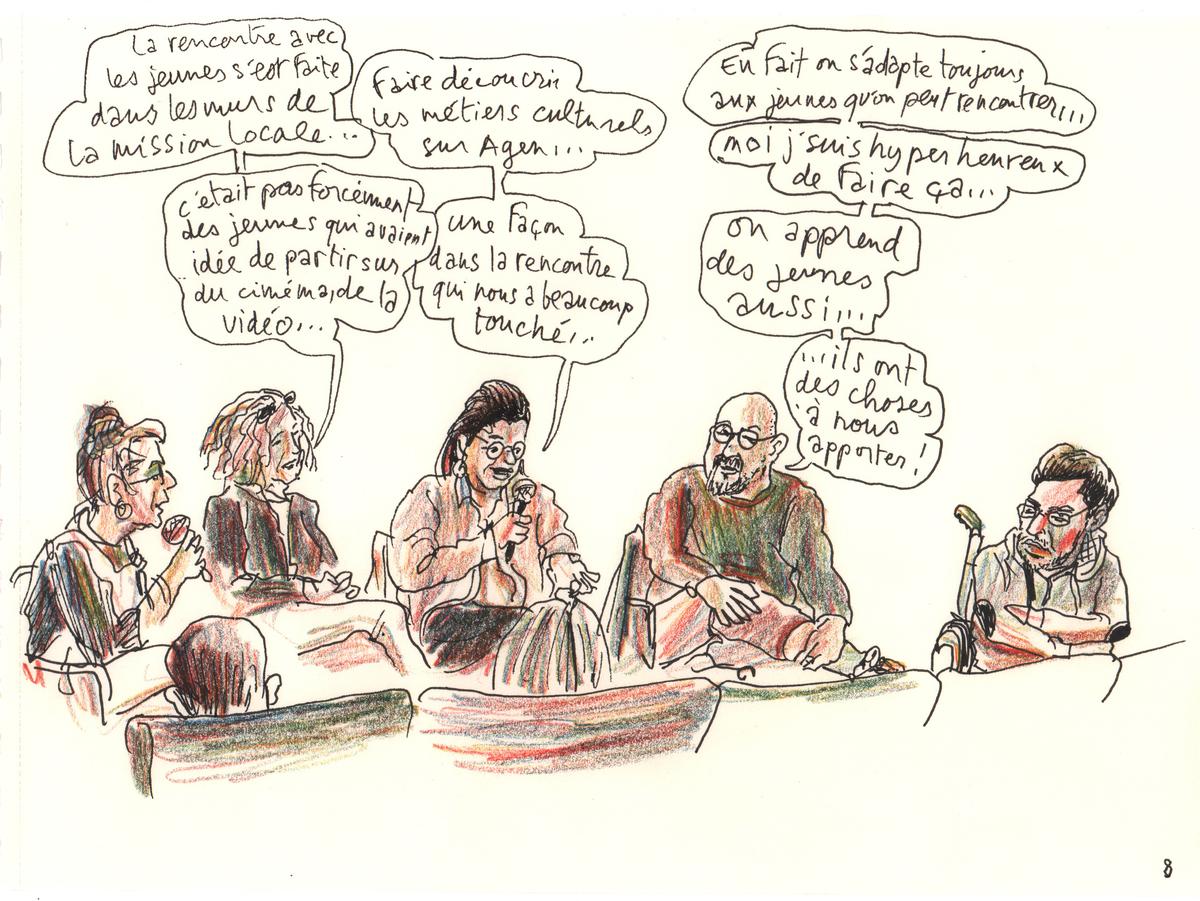 La rencontre avec
les jeunes s'est faite
dans les murs de
la mission locale...
c'était pas forcément
des jeunes qui avaient
idée de partir sur
du cinéma, de la
vidéo...
Faire découvrir
les métiers culturels
sur Agen...
une façon
dans la rencontre
qui nous a beaucoup
touché...
En fait on s'adapte toujours
aux jeunes qu'on peut rencontrer...
moi j'suis hyper heureux
de faire ça...
on apprend
des jeunes
aussi...
...ils ont
des choses
à nous
apporter!
8